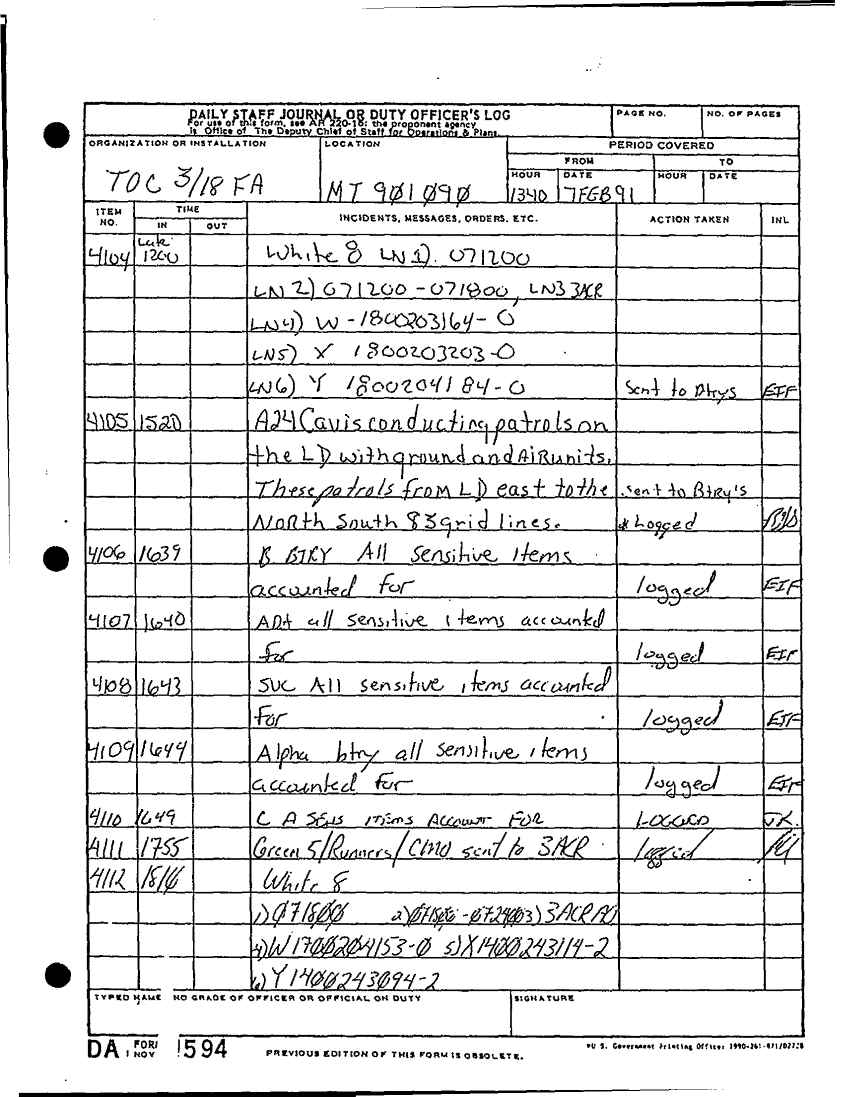 DAILY STAFF JOURNAL OR DUTY OFFICER'S LOG
For use of this form, see AR 220-15: the proponent agency
is Office of The Deputy Chief of Staff for Operations & Plans.
PAGE NO.
NO. OF PAGES
ORGANIZATION OR INSTALLATION
TOC 3/18 FA
LOCATION
MT 901090
PERIOD COVERED
FROM TO
HOUR DATE HOUR DATE
1340 7FEB91
ITEM NO. TIME IN OUT INCIDENTS, MESSAGES, ORDERS, ETC. ACTION TAKEN INL
4104 Late 1200 White 8 LN 1). 071200
LN 2) 071200-071800, LN3 3ACR
LN4) W-1800203164-0
LN5) X 1800203203-0
LN6) Y 1800204184-0 Sent to Btrys EIF
4105 1520 A24Cavis conducting patrols on
the LD with ground and AiR units.
These patrols from LD east to the sent to Btry's
North South 83 grid lines. & Logged
4106 1639 B BTRY All sensitive items
accounted for logged EIF
4107 1640 ADA all sensitive items accounted
for logged EIF
4108 1643 SVC All sensitive items accounted
for logged EIF
4109 1644 Alpha btry all sensitive items
accounted for logged EIF
4110 1649 C A SENS ITEMS ACCOUNT FOR LOGGED JK.
4111 1755 Green 5/Runners/CMO sent to 3ACR logged
4112 1816 White 8
1) 071800 2) 071800-072400 3) 3ACR AO
4) W1700204153-0 5) X1400243114-2
6) Y1400243094-2
TYPED NAME NO GRADE OF OFFICER OR OFFICIAL ON DUTY
SIGNATURE
DA FORM 1 NOV 1594
PREVIOUS EDITION OF THIS FORM IS OBSOLETE.
*U S. Government Printing Office: 1990-261-871/02728